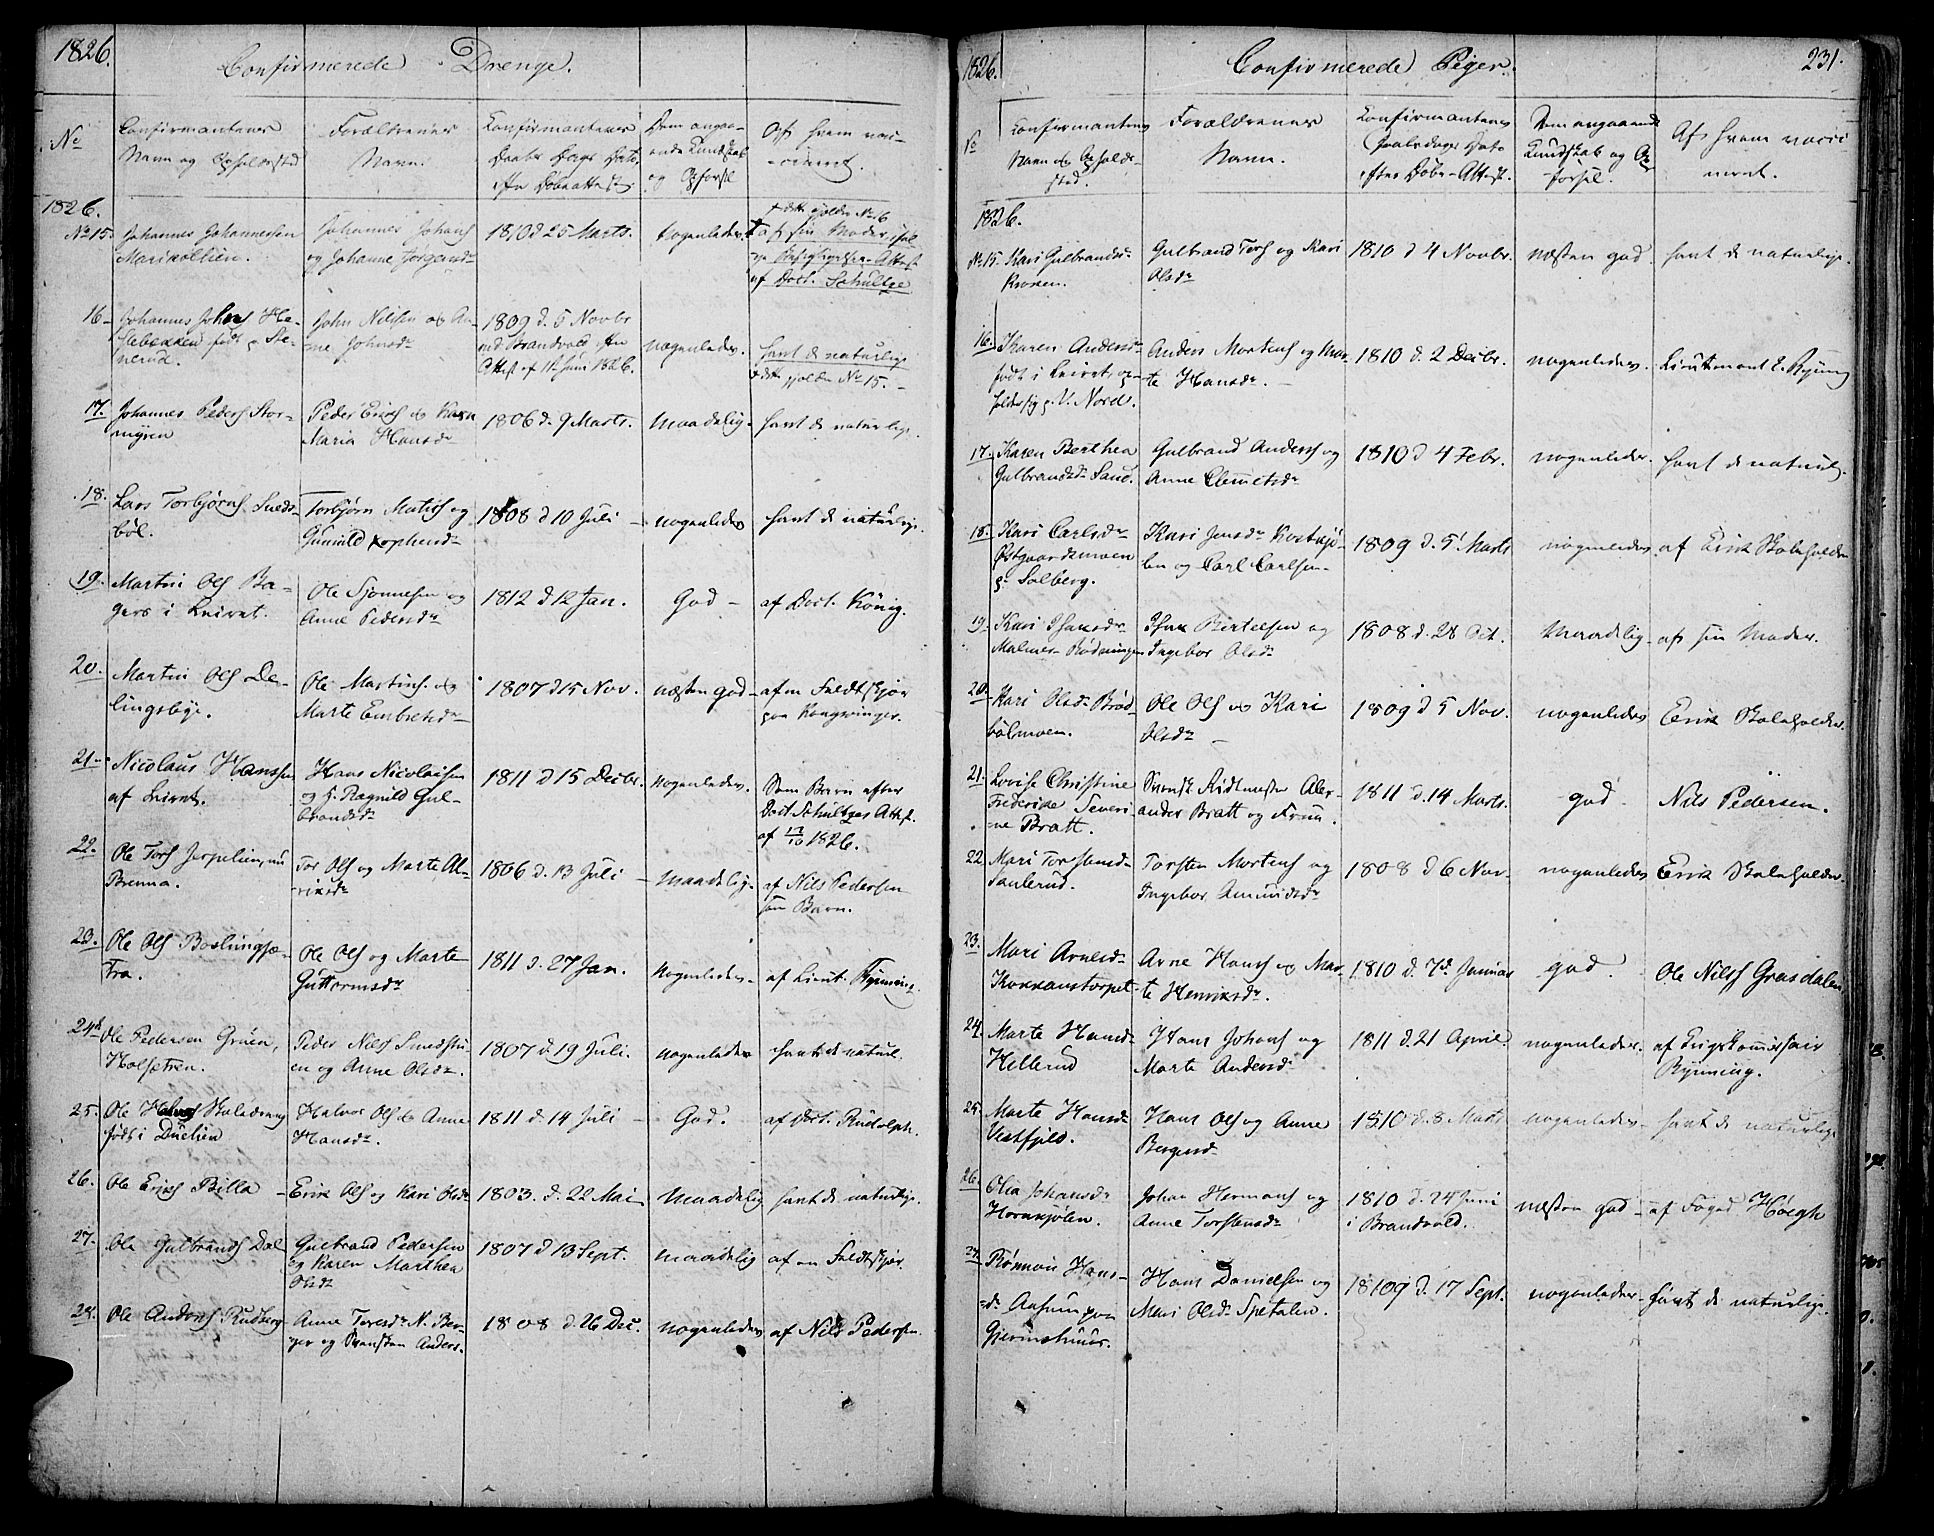 1826.
Confirmerede Drenge.
No
Confirmanternes
Navn og Opholdssted
Forældrenes
Navn.
Confirmanternes
Daabs Dags Dato
efter Døbeattest
Dem angaa-
ende Kundskab
og Opførsel
Af hvem vac-
cineret.
1826.
No 15.
Johannes Johannesen
Marikollien.
Johannes Johans
og Johanne Jørgensdr
1810 d 25 Marts.
nogenledes.
† dette gjelder No 16
af sin Moder, iføl-
ge Besigtigelses-Attest
af Doct. Schultze
16-
Johannes Johns He-
stebekken født p. Ste-
nerud.
John Nilsen og An-
ne Johnsdr
1809 d. 5 Novbr
ved Brandvold efter
Attest af 11te Juni 1826.
nogenledes.
havt de naturlige
dette gjelder No 15.-
17.
Johannes Peders Stor-
myren
Peder Erichs og Karn
Maria Hansdr
1806 d. 9 Marts.
maadelig.
havt de naturlige.
18.
Lars Torbjørns. Sneds-
bøl.
Torbjørn Matiss og
Gunnild
1808 d 10 Juli -
nogenledes
havt de naturlige.
19.
Martin Ols Ba-
gers i Leiret.
Ole Sjønnesen og
Anne Pedersdr
1812 d 12 Jan.
God -
af Doct. König.
20.
Martin Ols De-
lingsbye.
Ole Martins. og
Marte Embretsdr
1807 d 15 Nov.
næsten god -
af en Feldtskjær
paa Kongsvinger.
21.
Nicolaus Hanssen
af Leiret.
Hans Nicolaisen
og F. Ragnild Gul-
brandsdr
1811 d 15 Decbr.
nogenledes.
Som Barn efter
Doct Schultzes Attest
af 17/10 1826.
22.
Ole Tors Jerpelien, nu
Brenna.
Tor Ols og Marte Al-
riksdr
1806 d. 13 Juli -
maadelig.
af Nils Pedersen
som Barn.
23.
Ole Ols Baslungsæ-
tra.
Ole Ols og Marte
Guttormsdr
1811 d. 27 Jan.
nogenledes -
af Lieut. Rynning.
24.
Ole Pedersen Gruen,
Holsetren.
Peder Nils Smedstu-
en og Anne Olsdr.
1807 d. 19 Juli.
nogenledes
havt de naturl.
25.
Ole Halvors Skoledreng
født i Duelien
Halvor Ols og Anne
Hansdr.
1811 d. 14 Juli -
God.
af Doct. Rudolph.
26.
Ole Erichs Billa -
Erik Ols og Kari Olsdr
1803. d. 22 Mai
maadelig
havt de naturlige.
27.
Ole Gulbrands Dal
Gulbrand Pedersen
og Karen Marthea
Olsdr
1807 d 13 Sept.
maadelig
af en Feldtskjær.
28.
Ole Anders Rudberg
Anne Toresdr N. Ber-
ger og Anders.
1808 d. 26 Dec.
nogenledes
af Nils Pedersen.
1826.
Confirmerede Piger.
231.
No
Confirmantens
Navn og Opholds-
sted.
Forældrenes
Navn.
Confirmantens
Daabsdags Dato
efter Døbe-Attest.
Dem angaaende
Kundskab og Op-
førsel.
Af hvem vacci-
neret.
1826.
No 15.
Kari Gulbrandsdr
Kroken.
Gulbrand Tors og Kari
Olsdr
1810 d 4 Novbr.
næsten god.
havt de naturlige.
16.
Karen Andersdr
født i Leiret, op-
holder sig p. V. Nord.
Anders Mortens og Mar-
te Hansdr. -
1810 d. 2 Decbr.
nogenledes.
Lieutenant E. Rynning
17.
Karen Berthea
Gulbrandsdr Sand.
Gulbrand Anders og
Anne Clemetsdr
1810 d 4 Febr.
nogenledes.
havt de naturl.
18.
Kari Carlsdr
Østgaardsmoen
p. Solberg.
Kari Jensdr Kortkjø-
len og Carl Carlsen-
1809 d. 5 Marts
nogenledes
af Erik Skoleholder
19.
Kari Isaksdr
Malmer-Rødningen
Isak Bertelsen og
Ingebor Olsdr
1808 d. 28 Oct.
Maadelig -
af sin Moder.
20.
Kari Olsdr Brød-
bølmoen.
Ole Ols og Kari
Olsdr -
1809 d 5 Nov.
nogenledes
Erik Skoleholder
21.
Lovise Christine
Frederike Severi-
ne Bratt.
Svensk Ridtmester Alex-
ander Bratt og Frue.
1811 d. 14 Marts.
god -
Nils Pedersen.
22.
Mari Torstensdr
Saulerud.
Torsten Mortens og
Ingebor Amundsdr
1808 d 6 Nov.
nogenledes
Erik Skoleholder.
23.
Mari Arnesdr
Kokkanstorpet.
Arne Hans og Mar-
te Henriksdr.
1810 d. 7de Januar
god.
Ole Nilss Grasdalen
24.
Marte Hansdr
Hellerud
Hans Johans og
Marte Andersdr
1811 d. 21 April.
nogenledes.
af Krigskommissair
Rynning.
25.
Marte Hansdr
Vestfjeld.
Hans Ols og Anne
Bergersdr
1810 d. 8 Marts
nogenledes -
havt de naturlige
26.
Olia Johansdr
Hornkjølen.
Johan Hermans og
Anne Torstensdr
1810 d. 24 Juni
i Brandvold.
næsten god -
af Foged Høegh
27.
Rønnau Hans-
dr. Aasum paa
Gjermshuus.
Hans Danielsen og
Mari Olsdr Spetalen.
18109 d. 17 Sept.
nogenledes -
havt de naturlige.